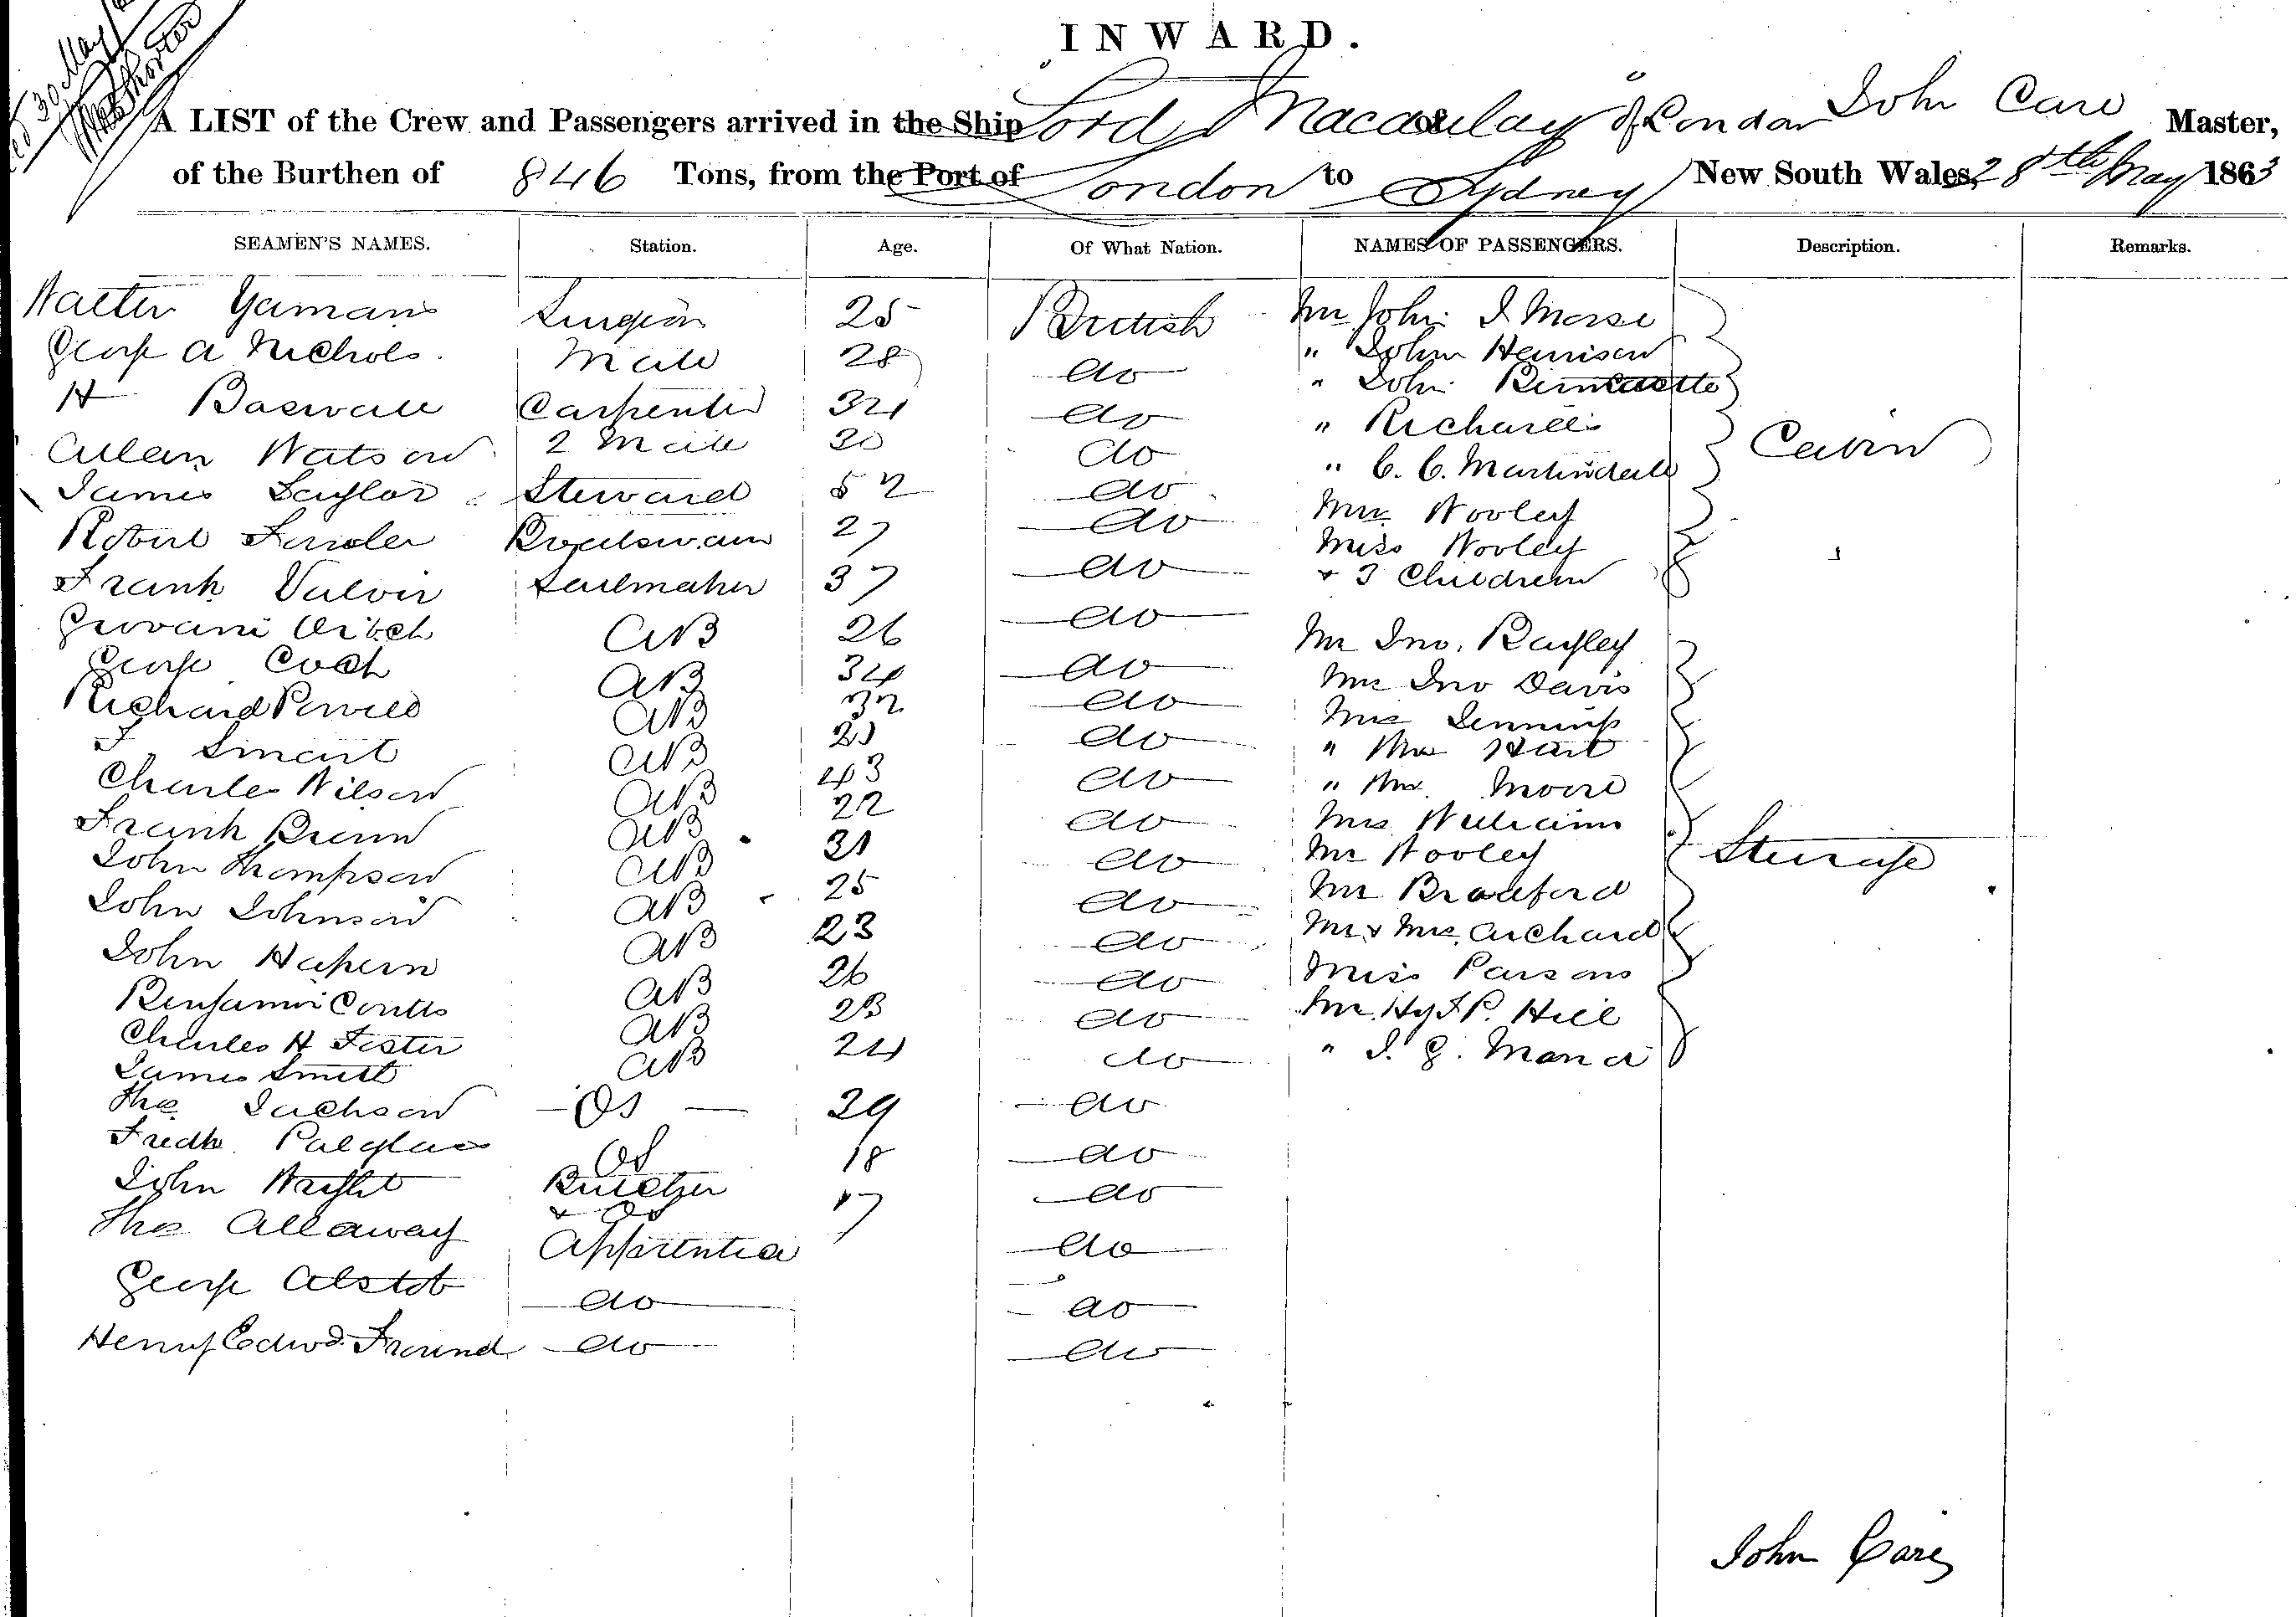 INWARD.
30 May
A LIST of the Crew and Passengers arrived in the Ship Lord Macaulay of London John Care Master,
of the Burthen of 846 Tons, from the Port of London to Sydney New South Wales, 28th May 1863
SEAMEN'S NAMES. Station. Age. Of What Nation. NAMES OF PASSENGERS. Description. Remarks.
Walter Yemans Surgeon 25 British Mr John I Morse
George A Nichols Mate 28 do " John Henrison
H Carpenter 34 do " John
Allan Watson 2 Mate 30 do " Richards
James Taylor Steward 52 do " C. C. Martindale Cabin
Robert Boatswain 27 do Mrs Wooley
Frank Sailmaker 37 do Miss Wooley
& 3 Children
AB 26 do Mr Jno. Bayley
George Cook AB 34 do Mr Jno Davis
Richard Powell AB 32 do Mrs Jennings
Smart AB 21 do " Mrs Hart
Charles Wilson AB 43 do " Mrs Moore
Frank Brown AB 22 do Mrs William
John Thompson AB 31 do Mr Wooley Steerage
John Johnson AB 25 do Mr Bradford
John AB 23 do Mr & Mrs Archard
Benjamin Coutts AB 26 do Miss Parsons
Charles H Fester AB 23 do Mr. Hy J P. Hill
James Smith AB 24 do " J. G. Mander
Thos Jackson OS 29 do
Fredk OS 18 do
John Wright Butcher & OS 17 do
Thos Allaway Apprentice do
George Alstob do do
Henry Edwd. Freund do do
John Care